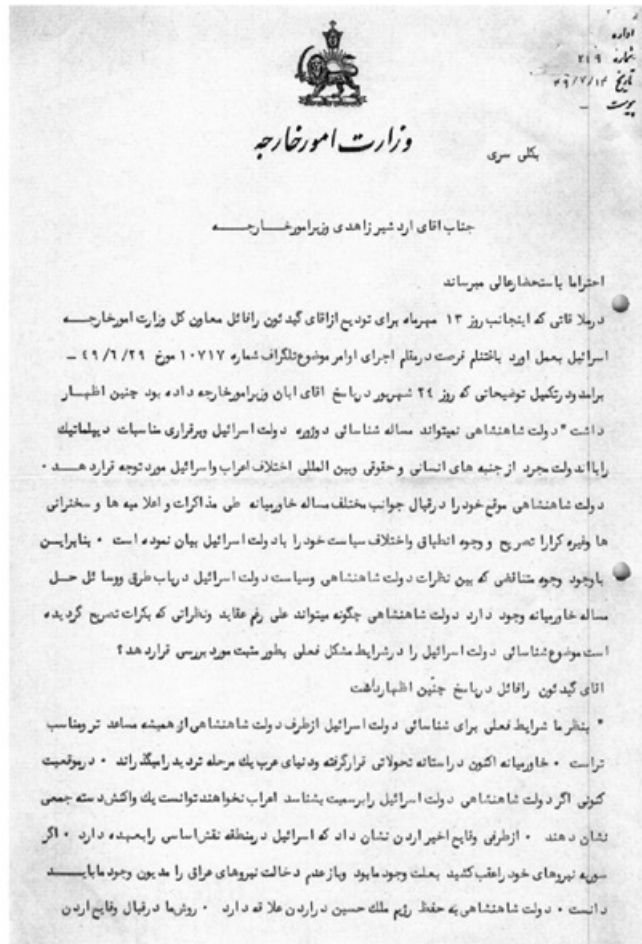 اداره
شماره ۲۴۹
تاریخ ۴۹/۷/۱۴
پیوست –
وزارت امور خارجه
بکلی سری
جناب اقای اردشیر زاهدی وزیر امورخـــارجـــه
احتراما باستحضارعالی میرساند
درملاقاتی که اینجانب روز ۱۳ مهرماه برای تودیع ازاقای گیدئون رافائل معاون کل وزارت امورخارجـــه
اسرائیل بعمل اورد باغتنام فرصت درمقام اجرای اوامر موضوع تلگراف شماره ۱۰۷۱۷ مورخ ۴۹/۶/۲۹ –
برامد ودرتکمیل توضیحاتی که روز ۲۴ شهریور درپاسخ اقای ابان وزیرامورخارجه داده بود چنین اظهـــار
داشت " دولت شاهنشاهی نمیتواند مساله شناسائی دوژوره دولت اسرائیل وبرقراری مناسبات دیپلماتیك
رابااندولت مجرد ازجنبه های انسانی و حقوقی وبین المللی اختلاف اعراب واسرائیل مورد توجه قراردهـــد ۰
دولت شاهنشاهی موقع خود را درقبال جوانب مختلف مساله خاورمیانه طی مذاکرات و اعلامیه ها و سخنرانی
ها وغیره کرارا تصریح و وجوه انطباق واختلاف سیاست خود را بادولت اسرائیل بیان نموده است ۰ بنابرایـــن
باوجود وجوه متناقضی که بین نظرات دولت شاهنشاهی وسیاست دولت اسرائیل درباب طرق ووسائل حـــل
مساله خاورمیانه وجود دارد دولت شاهنشاهی چگونه میتواند علی رغم عقاید ونظراتی که بکرات تصریح گردیده
است موضوع شناسائی دولت اسرائیل را درشرایط مشکل فعلی بطور مثبت مورد بررسی قراردهد ؟
اقای گیدئون رافائل درپاسخ چنین اظهارداشت
" بنظرما شرایط فعلی برای شناسائی دولت اسرائیل ازطرف دولت شاهنشاهی از همیشه مساعد تر ومناسب
تراست ۰ خاورمیانه اکنون دراستانه تحولاتی قرارگرفته ودنیای عرب یك مرحله تردید رامیگذراند ۰ درموقعیت
کنونی اگر دولت شاهنشاهی دولت اسرائیل رابرسمیت بشناسد اعراب نخواهند توانست یك واکنش دسته جمعی
نشان دهند ۰ ازطرفی وقایع اخیر اردن نشان داد که اسرائیل درمنطقه نقش اساسی رابعهده دارد ۰ اگر
سوریه نیروهای خود راعقب کشید بعلت وجود مابود وبازعدم دخالت نیروهای عراق را مدیون وجود مابایـــد
دانست ۰ دولت شاهنشاهی به حفظ رژیم ملك حسین دراردن علاقه دارد ۰ روش ما درقبال وقایع اردن